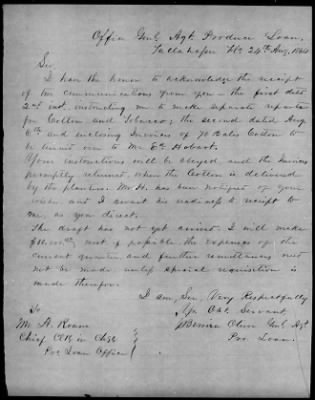 Office Genl Agt. Produce Loan,
Tallahassee Fla. 24th Aug, 1864
Sir
I have the honor to acknowledge the receipt
of two communications from you - the first dated
2nd inst. instructing me to make separate reports
for Cotton and Tobacco; the second dated Aug
6th and enclosing Invoices of 70 Bales Cotton to
be turned over to Mr Ed. Hobart.
Your instructions will be obeyed and the Invoices
promptly returned, when the Cotton is delivered
by the planters. Mr H. has been notified of your
wishes and I await his readiness to receipt to
me, as you direct.
The draft has not yet arrived. I will make
meet if possible the expenses of the
current quarter, and further remittances need
not be made, unless special requisition is
made therefor.
I am, Sir, Very Respectfully
Obt. Servant,
Genl Agt
Pro. Loan.
To
Mr A. Roane
Chief Clk in Chge
Pro Loan Office